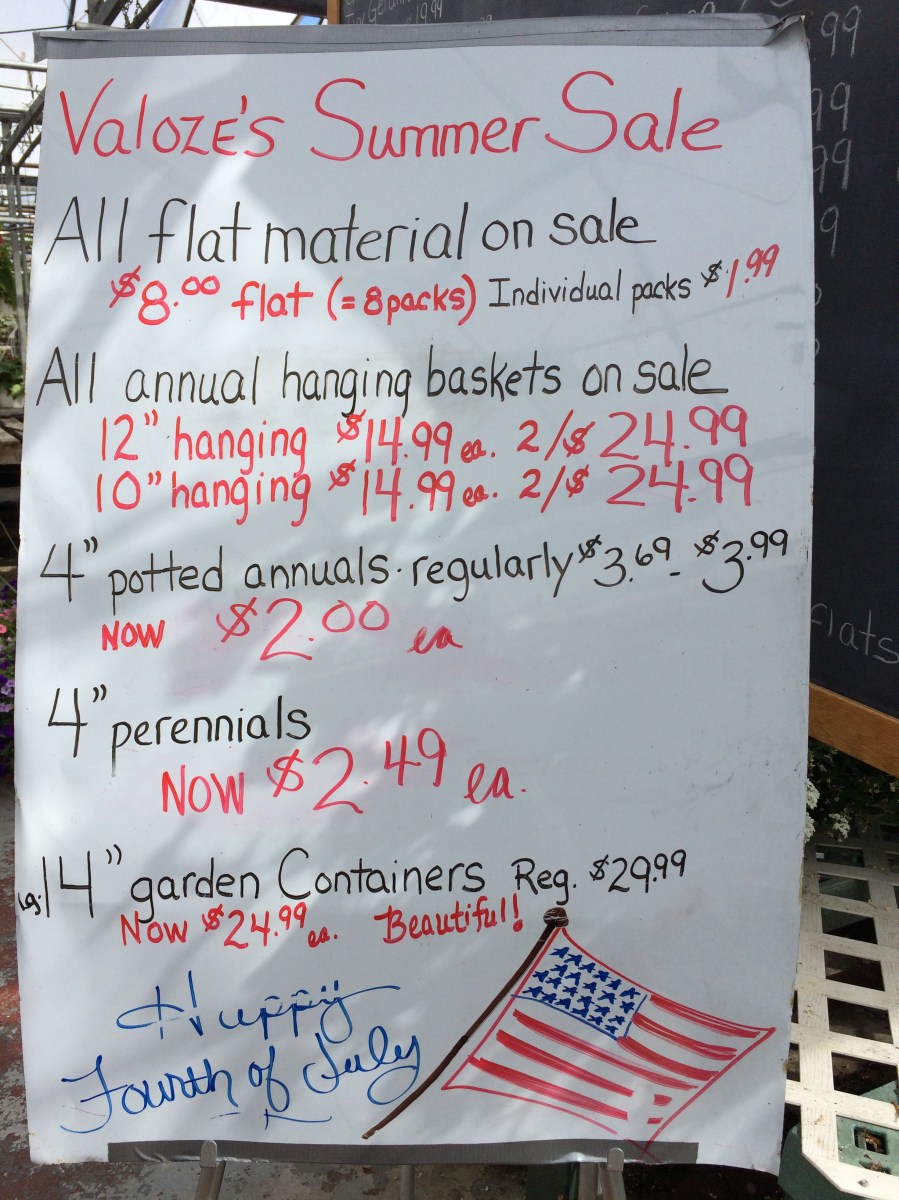 Valoze's Summer Sale
All flat material on sale
$8.00 flat (=8packs) Individual packs $1.99
All annual hanging baskets on sale
12" hanging $14.99 ea. 2/$ 24.99
10" hanging $14.99 ea. 2/$ 24.99
4" potted annuals. regularly $3.69 - $3.99
Now $2.00 ea
4" perennials
Now $2.49 ea.
lg. 14" garden Containers Reg. $29.99
Now $24.99 ea. Beautiful!
Happy
Fourth of July
19.99
99
99
99
9
flats